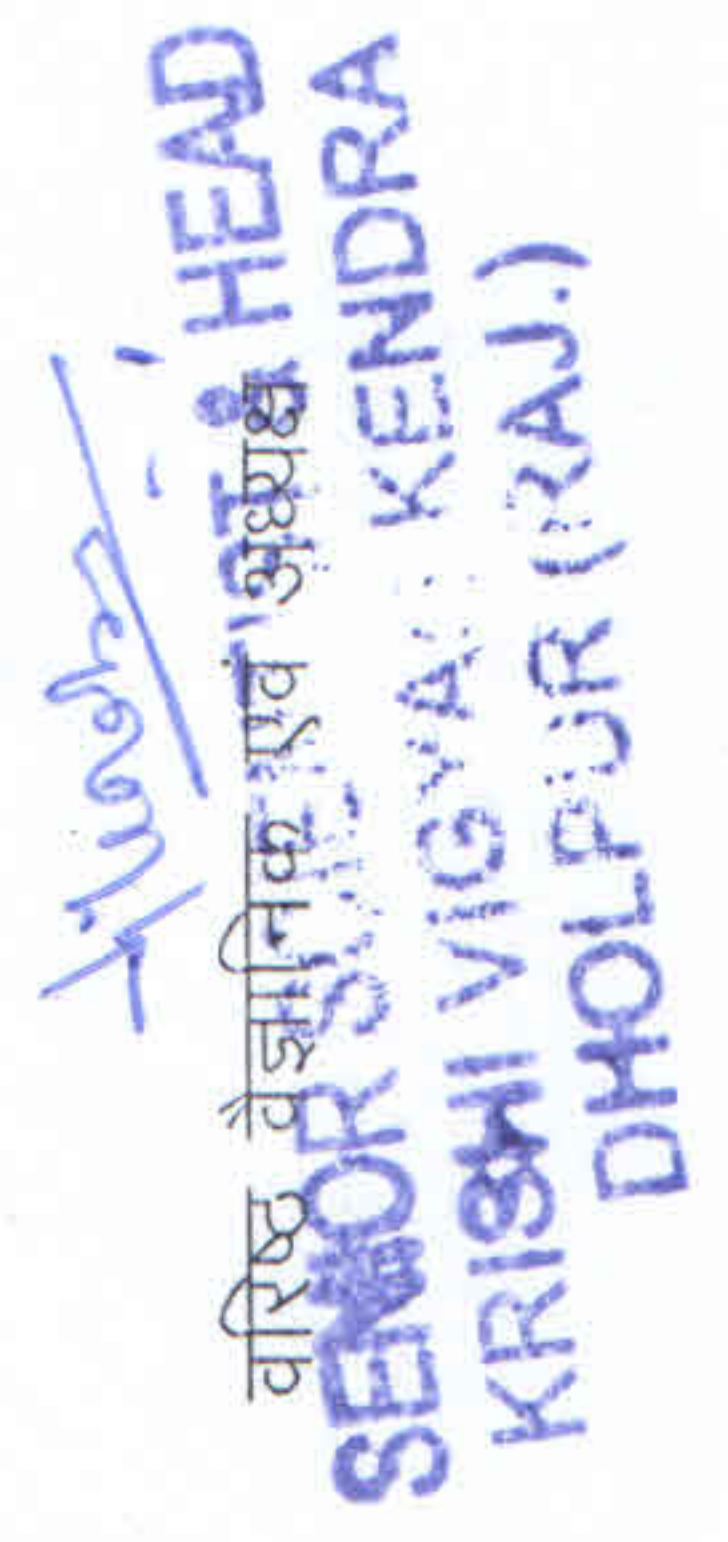 वरिष्ठ वैज्ञानिक एवं अध्यक्ष
SENIOR SCIENTIST & HEAD
KRISHI VIGYAN KENDRA
DHOLPUR (RAJ.)